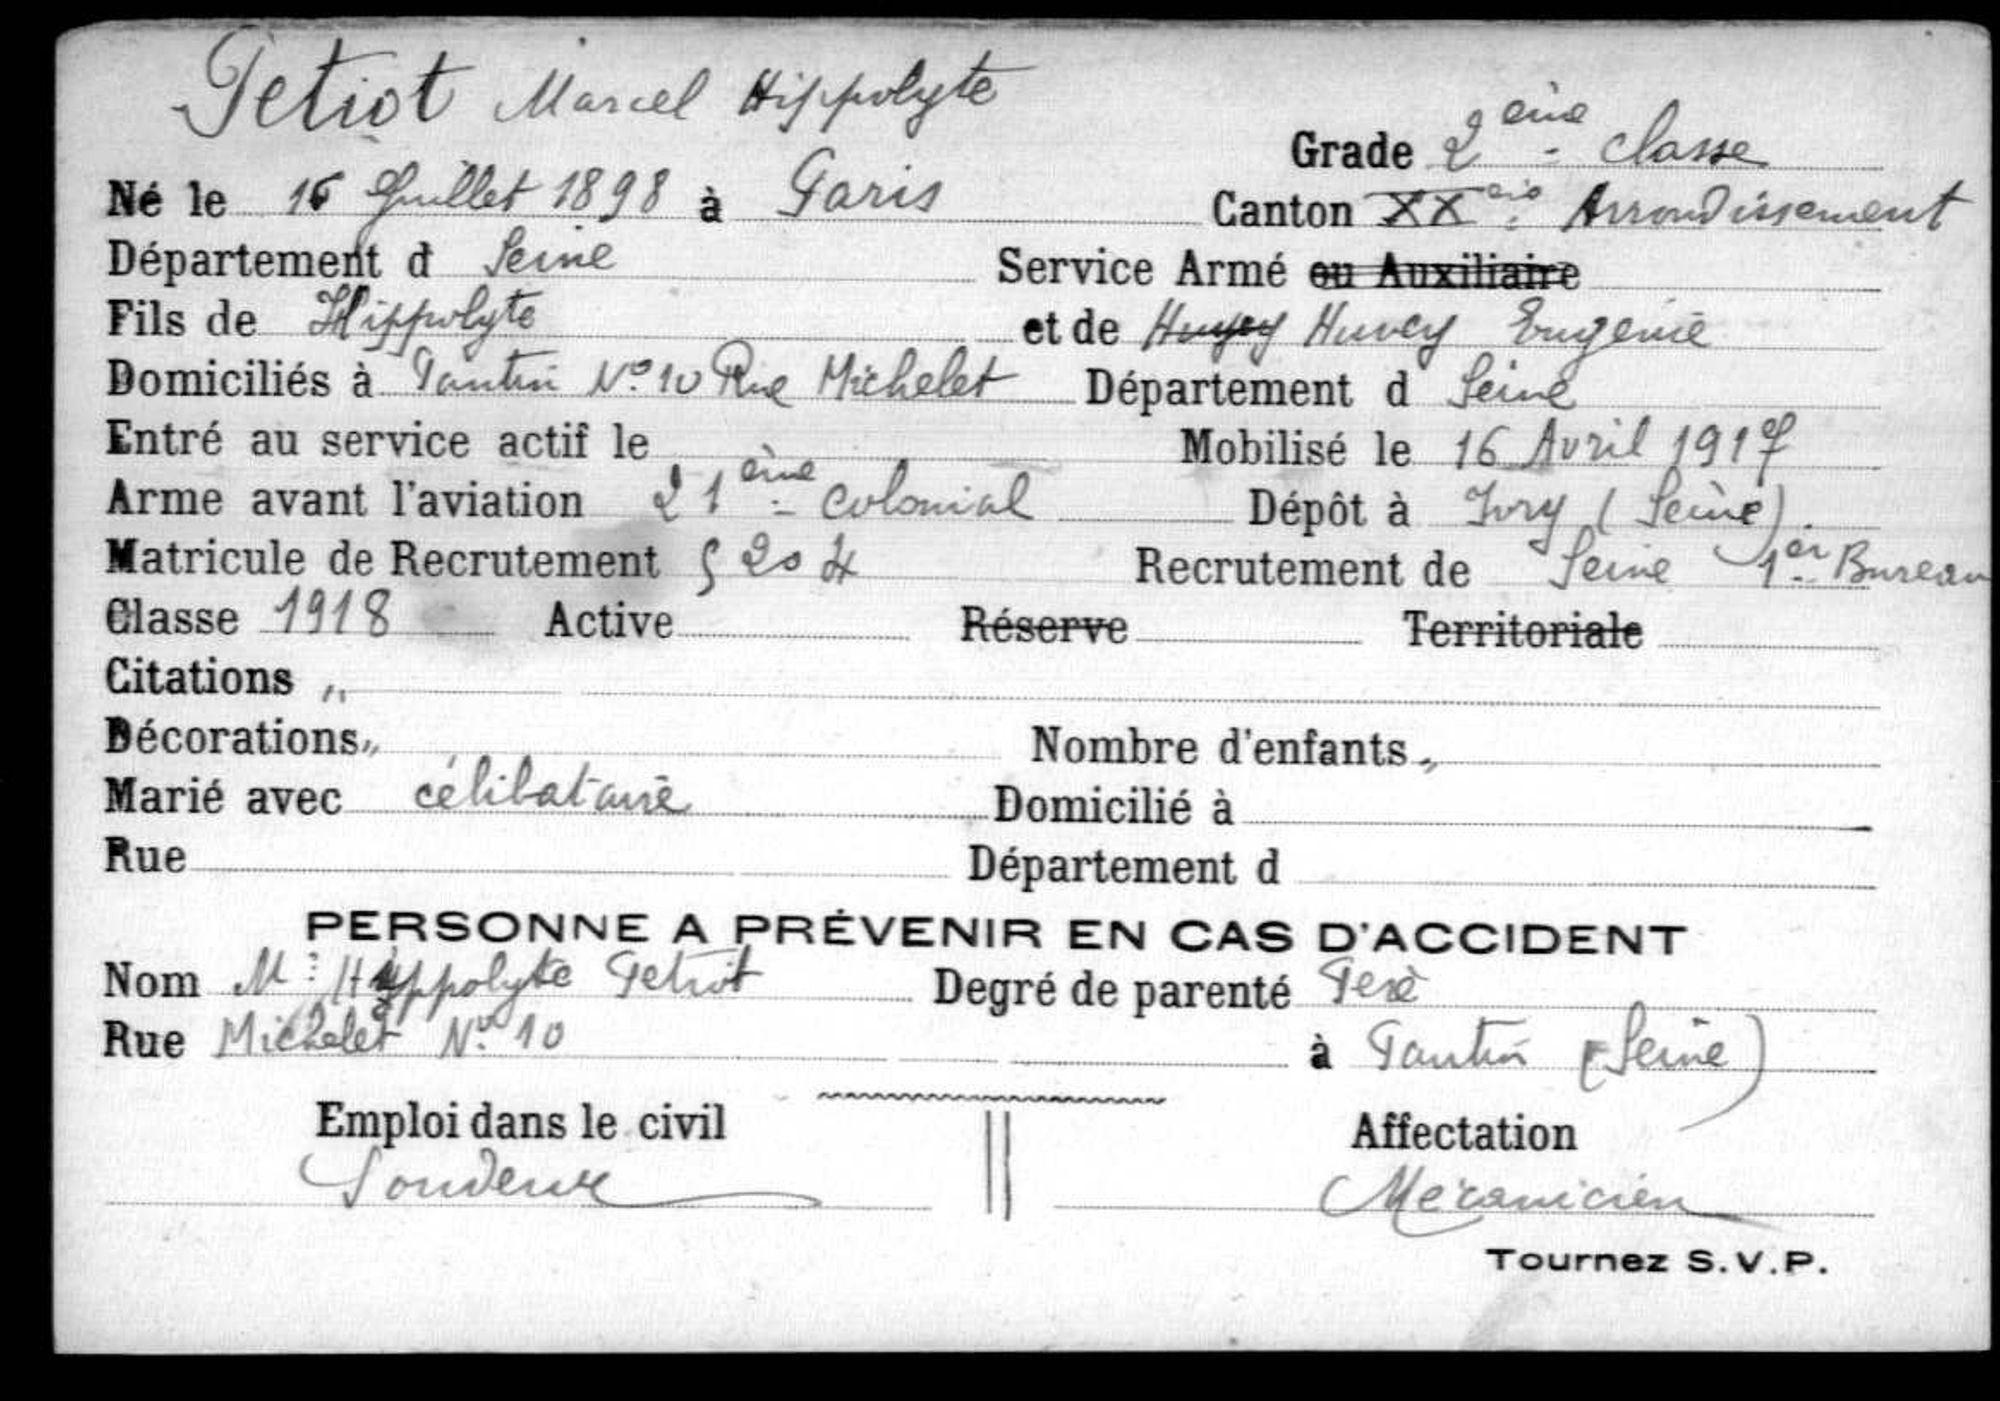 Petiot Marcel Hippolyte
Grade 2ème classe
Né le 16 Juillet 1898 à Paris Canton XXeme Arrondissement
Département d Seine Service Armé ou Auxiliaire
Fils de Hippolyte et de Huvey Eugenie
Domiciliés à Pantin N° 10 Rue Michelet Département d Seine
Entré au service actif le Mobilisé le 16 Avril 1917
Arme avant l'aviation 21ème colonial Dépôt à Ivry (Seine).
Matricule de Recrutement 5204 Recrutement de Seine 1er Bureau
Classe 1918 Active Réserve Territoriale
Citations „
Décorations „ Nombre d'enfants „
Marié avec célibataire Domicilié à
Rue Département d
PERSONNE A PRÉVENIR EN CAS D'ACCIDENT
Nom Mr Hyppolyte Petiot Degré de parenté Père
Rue Michelet N° 10 à Pantin (Seine)
Emploi dans le civil Affectation
Soudeur Mécanicien
Tournez S.V.P.